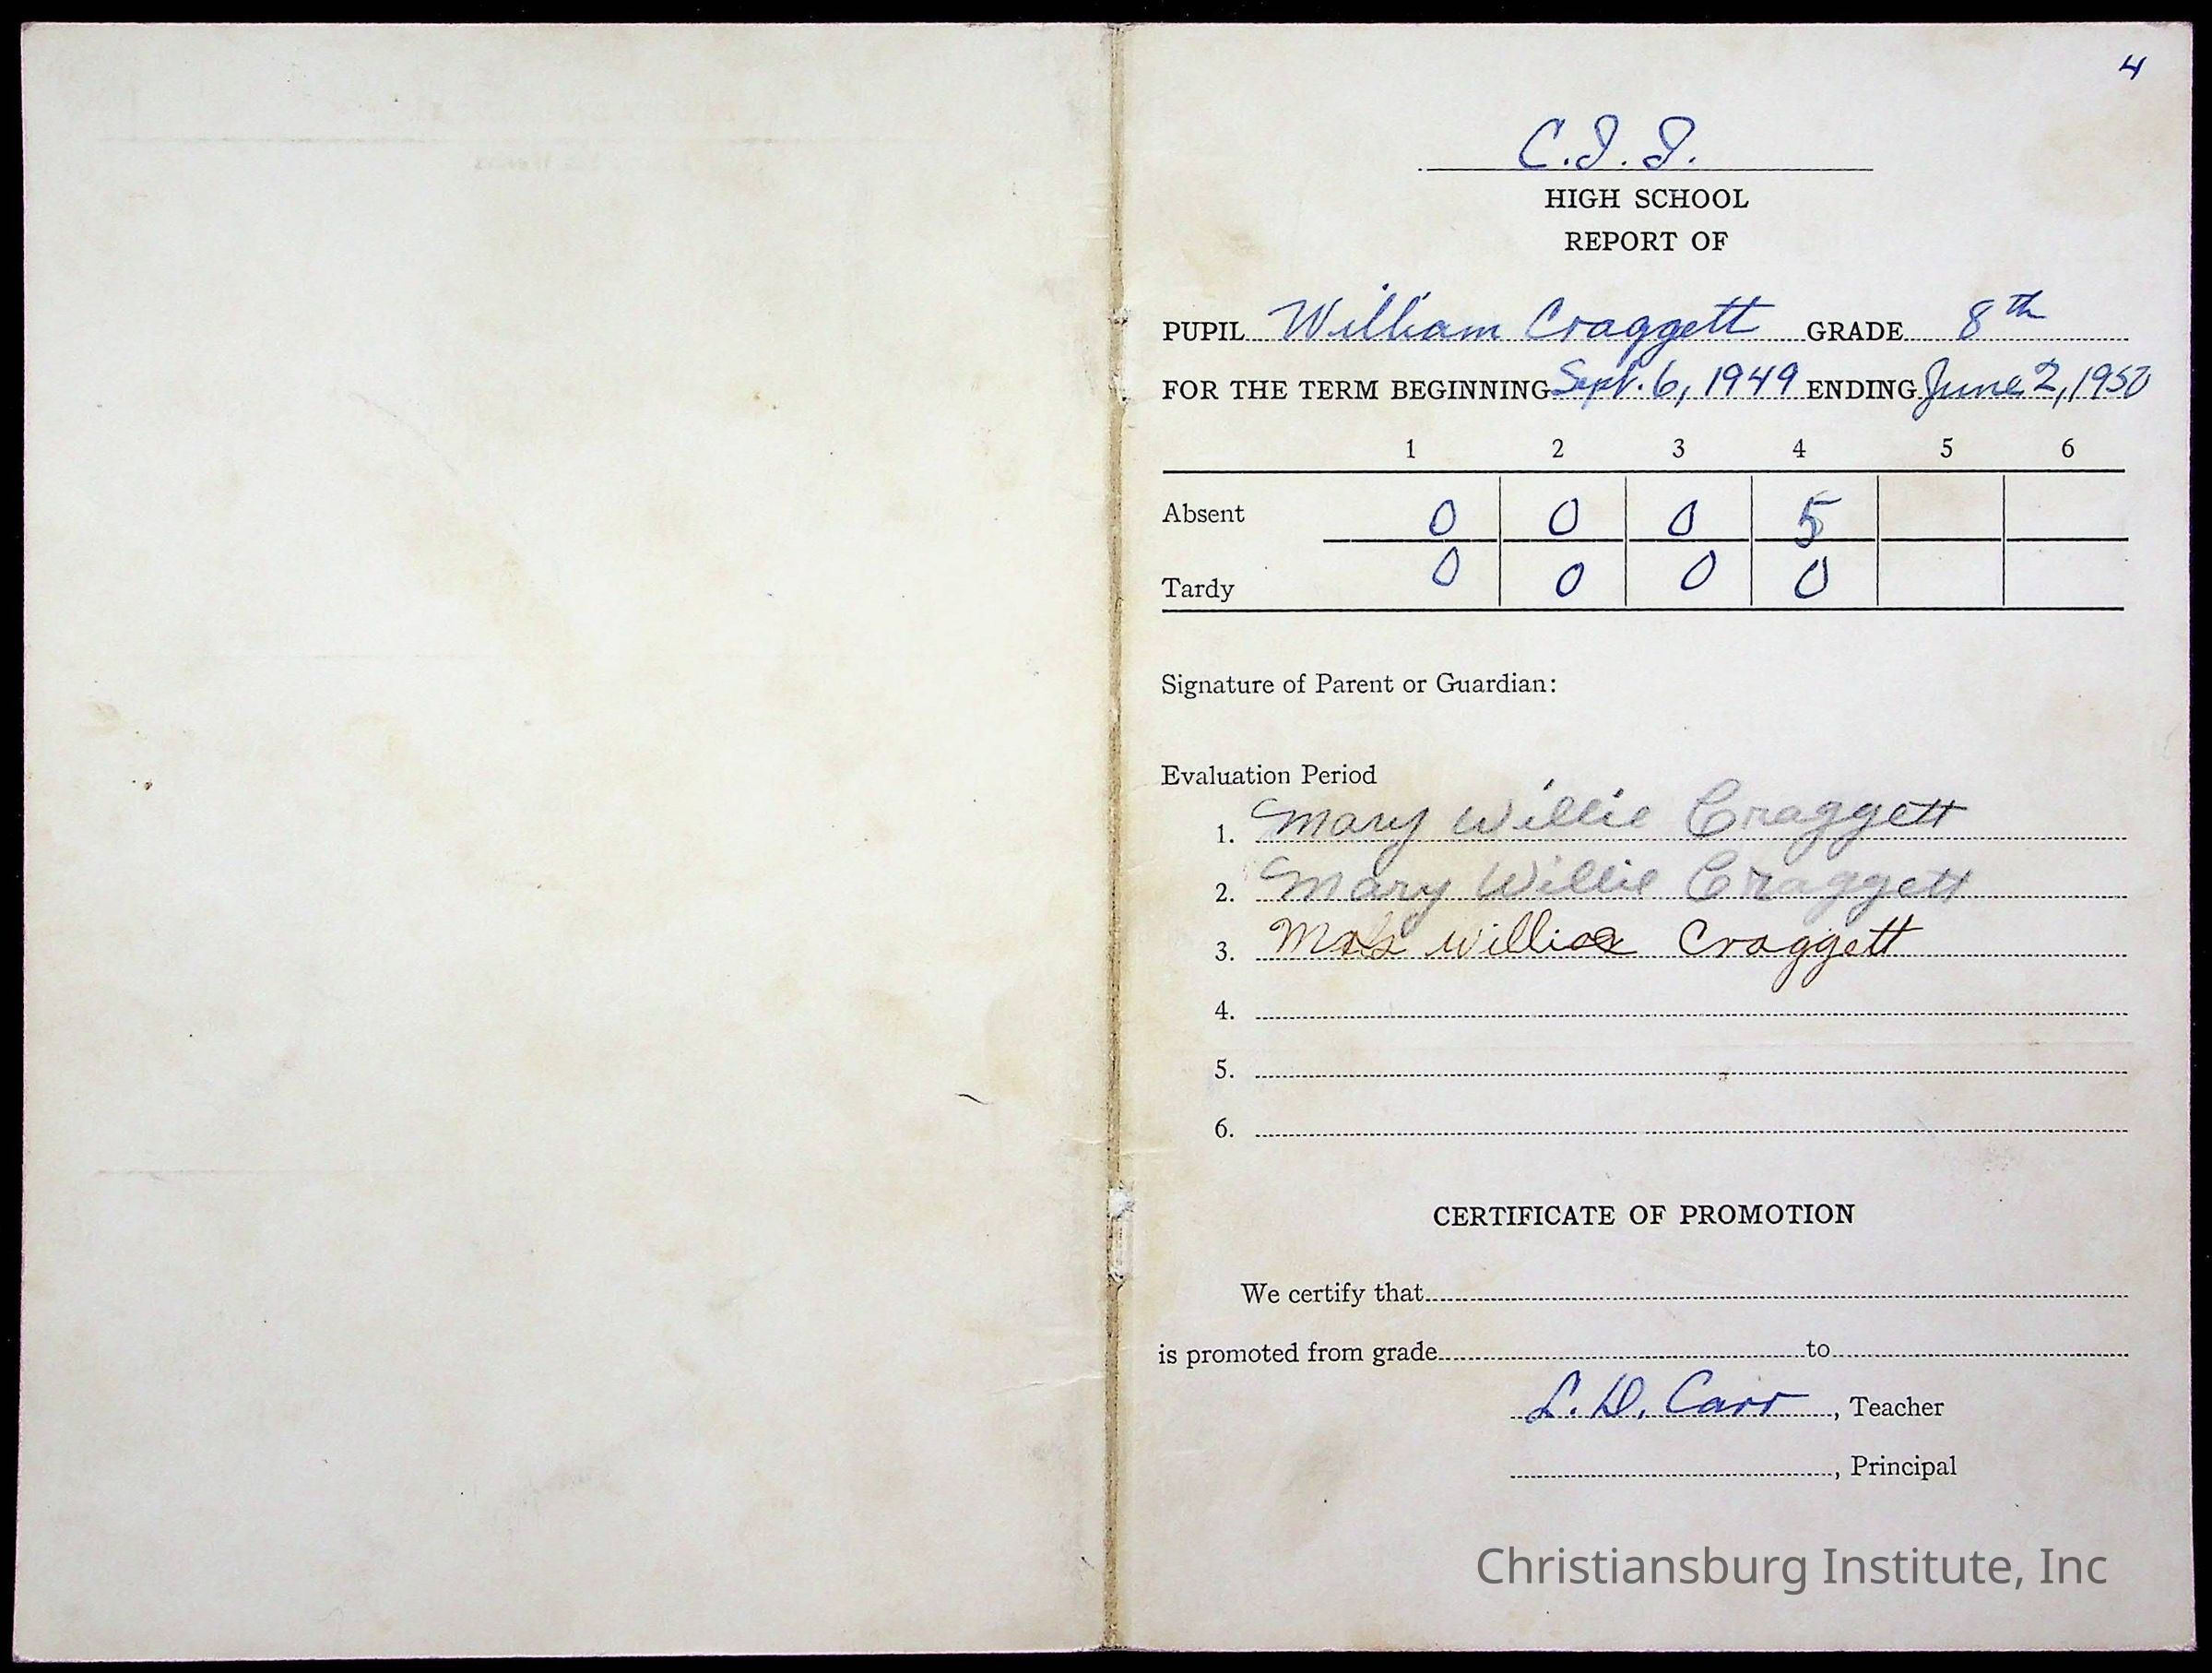 4
C.I.I.
HIGH SCHOOL
REPORT OF
PUPIL William Craggett GRADE 8th
FOR THE TERM BEGINNING Sept. 6, 1949 ENDING June 2, 1950
1 2 3 4 5 6
Absent 0 0 0 5
Tardy 0 0 0 0
Signature of Parent or Guardian:
Evaluation Period
1. Mary Willie Craggett
2. Mary Willie Craggett
3. Craggett
4.
5.
6.
CERTIFICATE OF PROMOTION
We certify that
is promoted from grade to
L. D. Carr, Teacher
, Principal
Christiansburg Institute, Inc